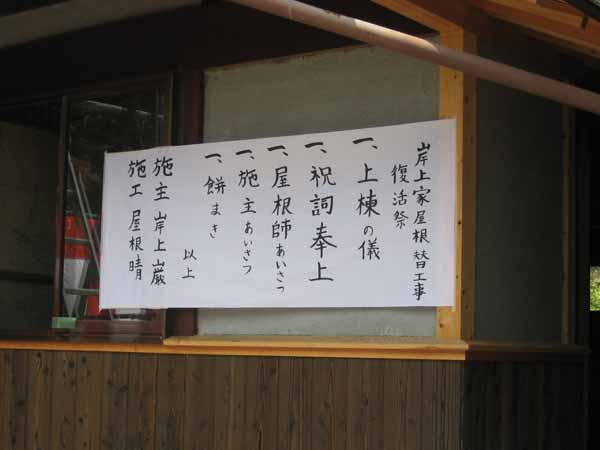 岸上家屋根替工事
復活祭
一、上棟の儀
一、祝詞奉上
一、屋根師あいさつ
一、施主あいさつ
一、餅まき
以上
施主 岸上巌
施工 屋根晴